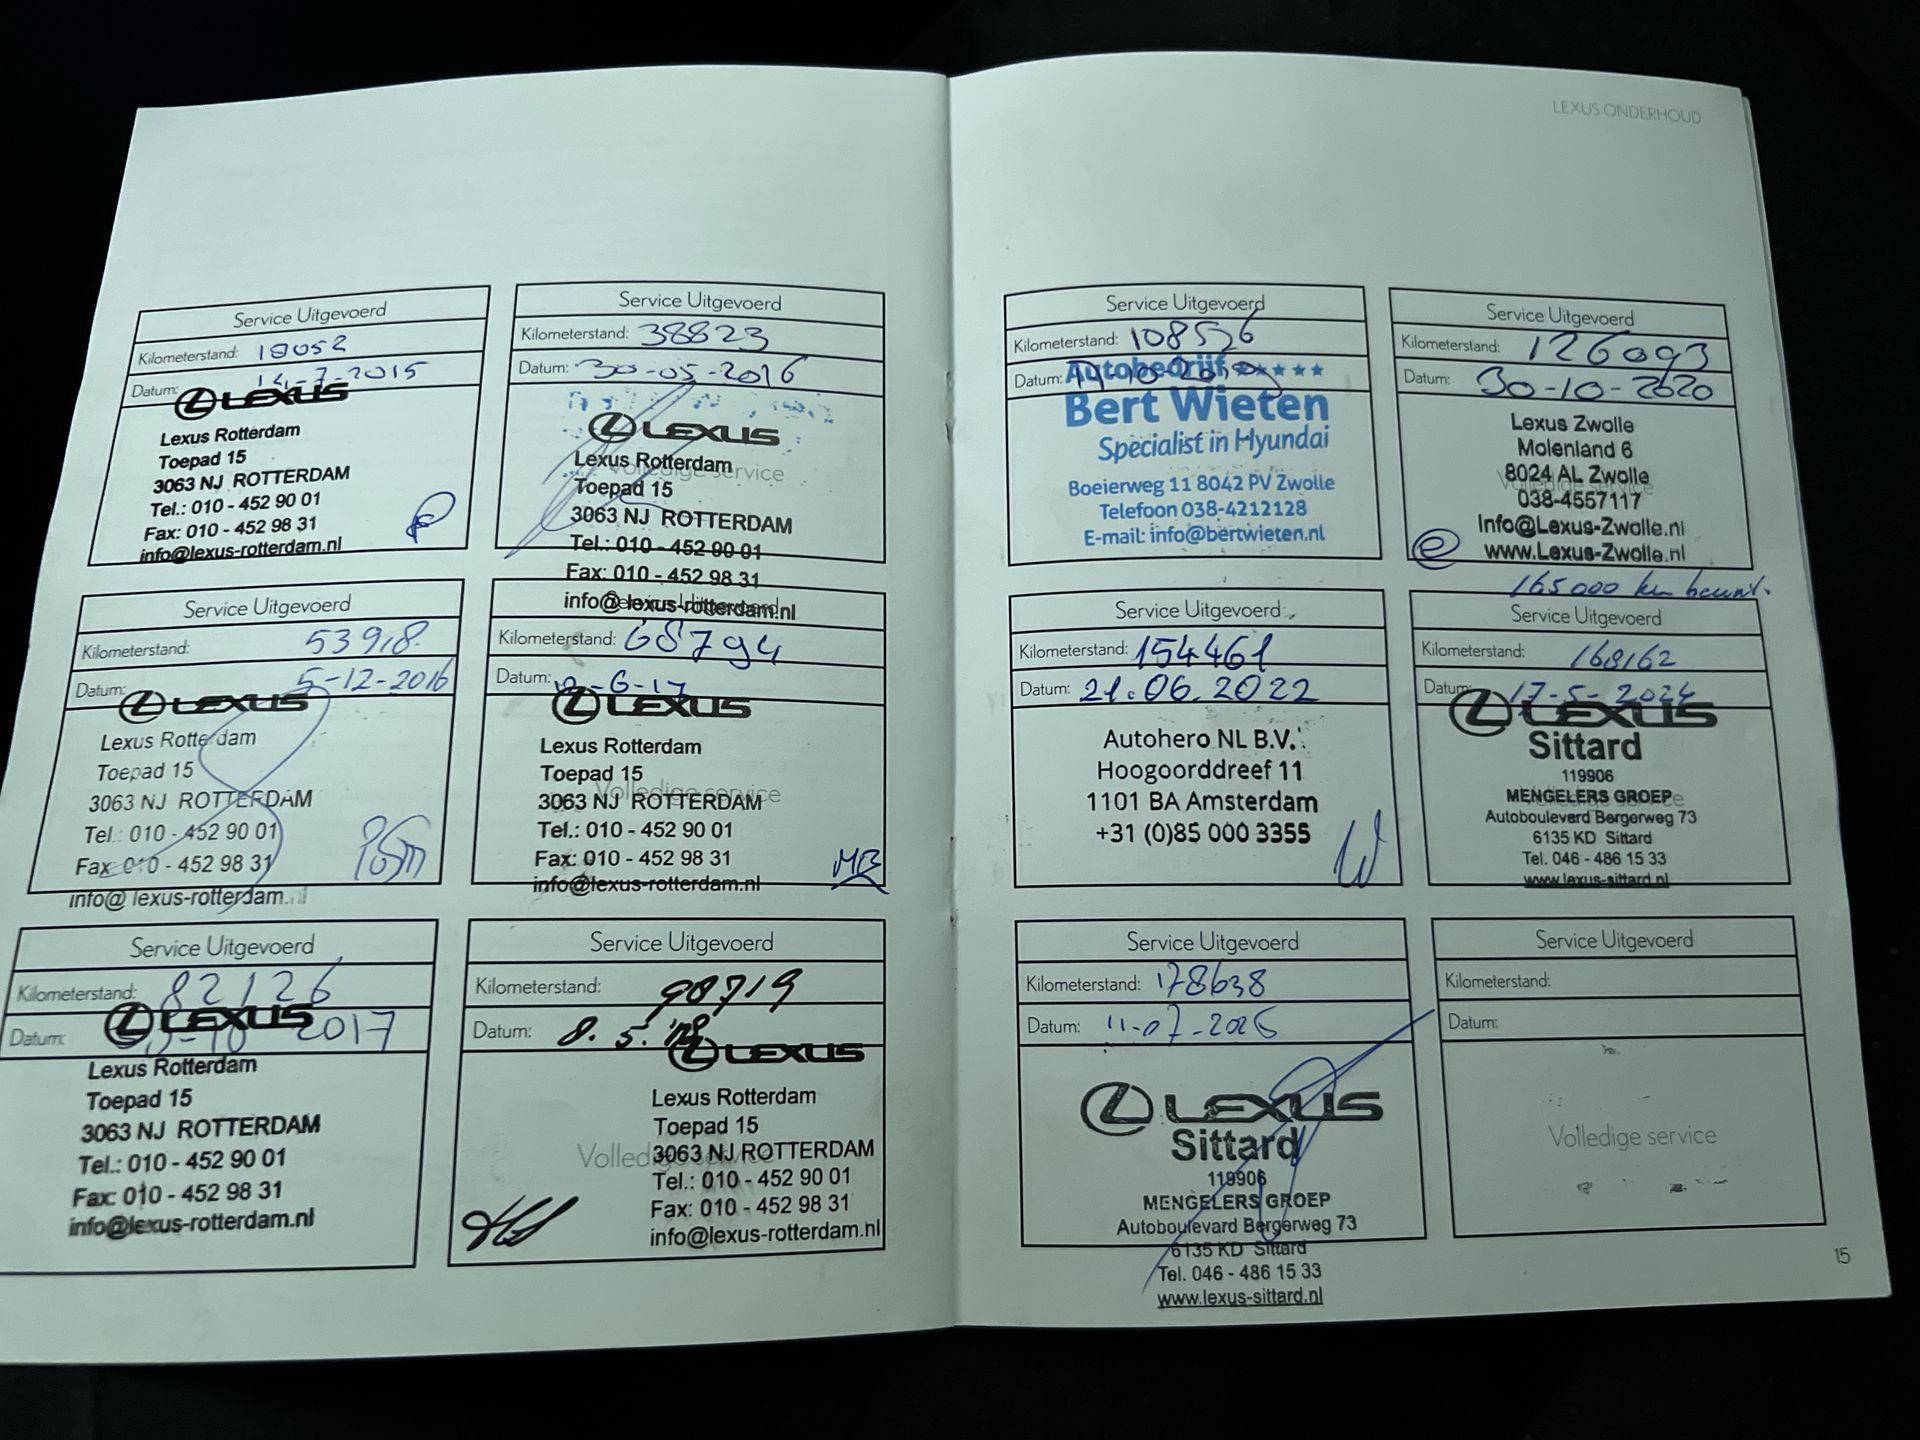 LEXUS ONDERHOUD
Service Uitgevoerd
Kilometerstand: 19052
Datum: 14-7-2015
LEXUS
Lexus Rotterdam
Toepad 15
3063 NJ ROTTERDAM
Tel.: 010 - 452 90 01
Fax: 010 - 452 98 31
info@lexus-rotterdam.nl
Service Uitgevoerd
Kilometerstand: 38823
Datum: 30-05-2016
LEXUS
Lexus Rotterdam
Volledige service
Toepad 15
3063 NJ ROTTERDAM
Tel.: 010 - 452 90 01
Fax: 010 - 452 98 31
info@lexus-rotterdam.nl
Service Uitgevoerd
Kilometerstand: 53918
Datum: 5-12-2016
LEXUS
Lexus Rotterdam
Toepad 15
3063 NJ ROTTERDAM
Tel.: 010 - 452 90 01
Fax: 010 - 452 98 31
info@lexus-rotterdam.nl
Service Uitgevoerd
Kilometerstand: 68794
Datum: -6-17
LEXUS
Lexus Rotterdam
Toepad 15
Volledige service
3063 NJ ROTTERDAM
Tel.: 010 - 452 90 01
Fax: 010 - 452 98 31
MB
info@lexus-rotterdam.nl
Service Uitgevoerd
Kilometerstand: 82126
Datum: -10-2017
LEXUS
Lexus Rotterdam
Toepad 15
3063 NJ ROTTERDAM
Tel.: 010 - 452 90 01
Fax: 010 - 452 98 31
info@lexus-rotterdam.nl
Service Uitgevoerd
Kilometerstand: 98719
Datum: 8.5.'18
LEXUS
Lexus Rotterdam
Toepad 15
Volledige service
3063 NJ ROTTERDAM
Tel.: 010 - 452 90 01
Fax: 010 - 452 98 31
info@lexus-rotterdam.nl
Service Uitgevoerd
Kilometerstand: 108526
Datum:
Autobedrijf
Bert Wieten
Specialist in Hyundai
Boeierweg 11 8042 PV Zwolle
Telefoon 038-4212128
E-mail: info@bertwieten.nl
Service Uitgevoerd
Kilometerstand: 126093
Datum: 30-10-2020
Lexus Zwolle
Molenland 6
8024 AL Zwolle
Volledige service
038-4557117
Info@Lexus-Zwolle.nl
www.Lexus-Zwolle.nl
165000 km beurt.
Service Uitgevoerd
Kilometerstand: 154461
Datum: 21.06.2022
Autohero NL B.V.
Hoogoorddreef 11
1101 BA Amsterdam
+31 (0)85 000 3355
Service Uitgevoerd
Kilometerstand: 168162
Datum: 17-5-2024
LEXUS
Sittard
119906
MENGELERS GROEP
Volledige service
Autoboulevard Bergerweg 73
6135 KD Sittard
Tel. 046 - 486 15 33
www.lexus-sittard.nl
Service Uitgevoerd
Kilometerstand: 178638
Datum: 11-07-2025
LEXUS
Sittard
119906
MENGELERS GROEP
Autoboulevard Bergerweg 73
6135 KD Sittard
Tel. 046 - 486 15 33
www.lexus-sittard.nl
Service Uitgevoerd
Kilometerstand:
Datum:
Volledige service
15